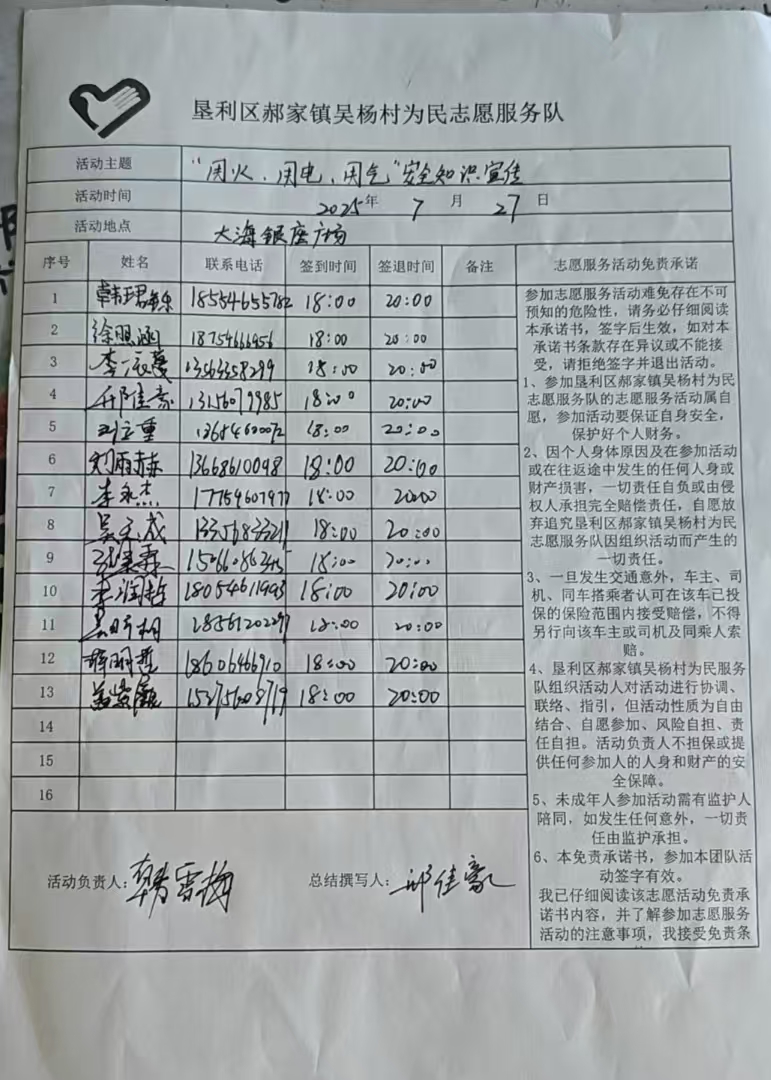 垦利区郝家镇吴杨村为民志愿服务队
活动主题 “用火、用电、用气”安全知识宣传
活动时间 2025年 7 月 27 日
活动地点 大海银座广场
序号 姓名 联系电话 签到时间 签退时间 备注
1 18554655782 18:00 20:00
2 18754666956 18:00 20:00
3 13563358299 18:00 20:00
4 邱佳豪 13156079985 18:00 20:00
5 18:00 20:00
6 刘雨赫 13668610098 18:00 20:00
7 李永杰 18:00 20:00
8 18:00 20:00
9 18:00 20:00
10 李润哲 18054611993 18:00 20:00
11 18:00 20:00
12 18606466910 18:00 20:00
13 15275608719 18:00 20:00
14
15
16
活动负责人:韩雪梅 总结撰写人:邱佳豪
志愿服务活动免责承诺
参加志愿服务活动难免存在不可
预知的危险性，请务必仔细阅读
本承诺书，签字后生效，如对本
承诺书条款存在异议或不能接
受，请拒绝签字并退出活动。
1、参加垦利区郝家镇吴杨村为民
志愿服务队的志愿服务活动属自
愿，参加活动要保证自身安全，
保护好个人财务。
2、因个人身体原因及在参加活动
或在往返途中发生的任何人身或
财产损害，一切责任自负或由侵
权人承担完全赔偿责任，自愿放
弃追究垦利区郝家镇吴杨村为民
志愿服务队因组织活动而产生的
一切责任。
3、一旦发生交通意外，车主、司
机、同车搭乘者认可在该车已投
保的保险范围内接受赔偿，不得
另行向该车主或司机及同乘人索
赔。
4、垦利区郝家镇吴杨村为民服务
队组织活动人对活动进行协调、
联络、指引，但活动性质为自由
结合、自愿参加、风险自担、责
任自担。活动负责人不担保或提
供任何参加人的人身和财产的安
全保障。
5、未成年人参加活动需有监护人
陪同，如发生任何意外，一切责
任由监护承担。
6、本免责承诺书，参加本团队活
动签字有效。
我已仔细阅读该志愿活动免责承
诺书内容，并了解参加志愿服务
活动的注意事项，我接受免责条